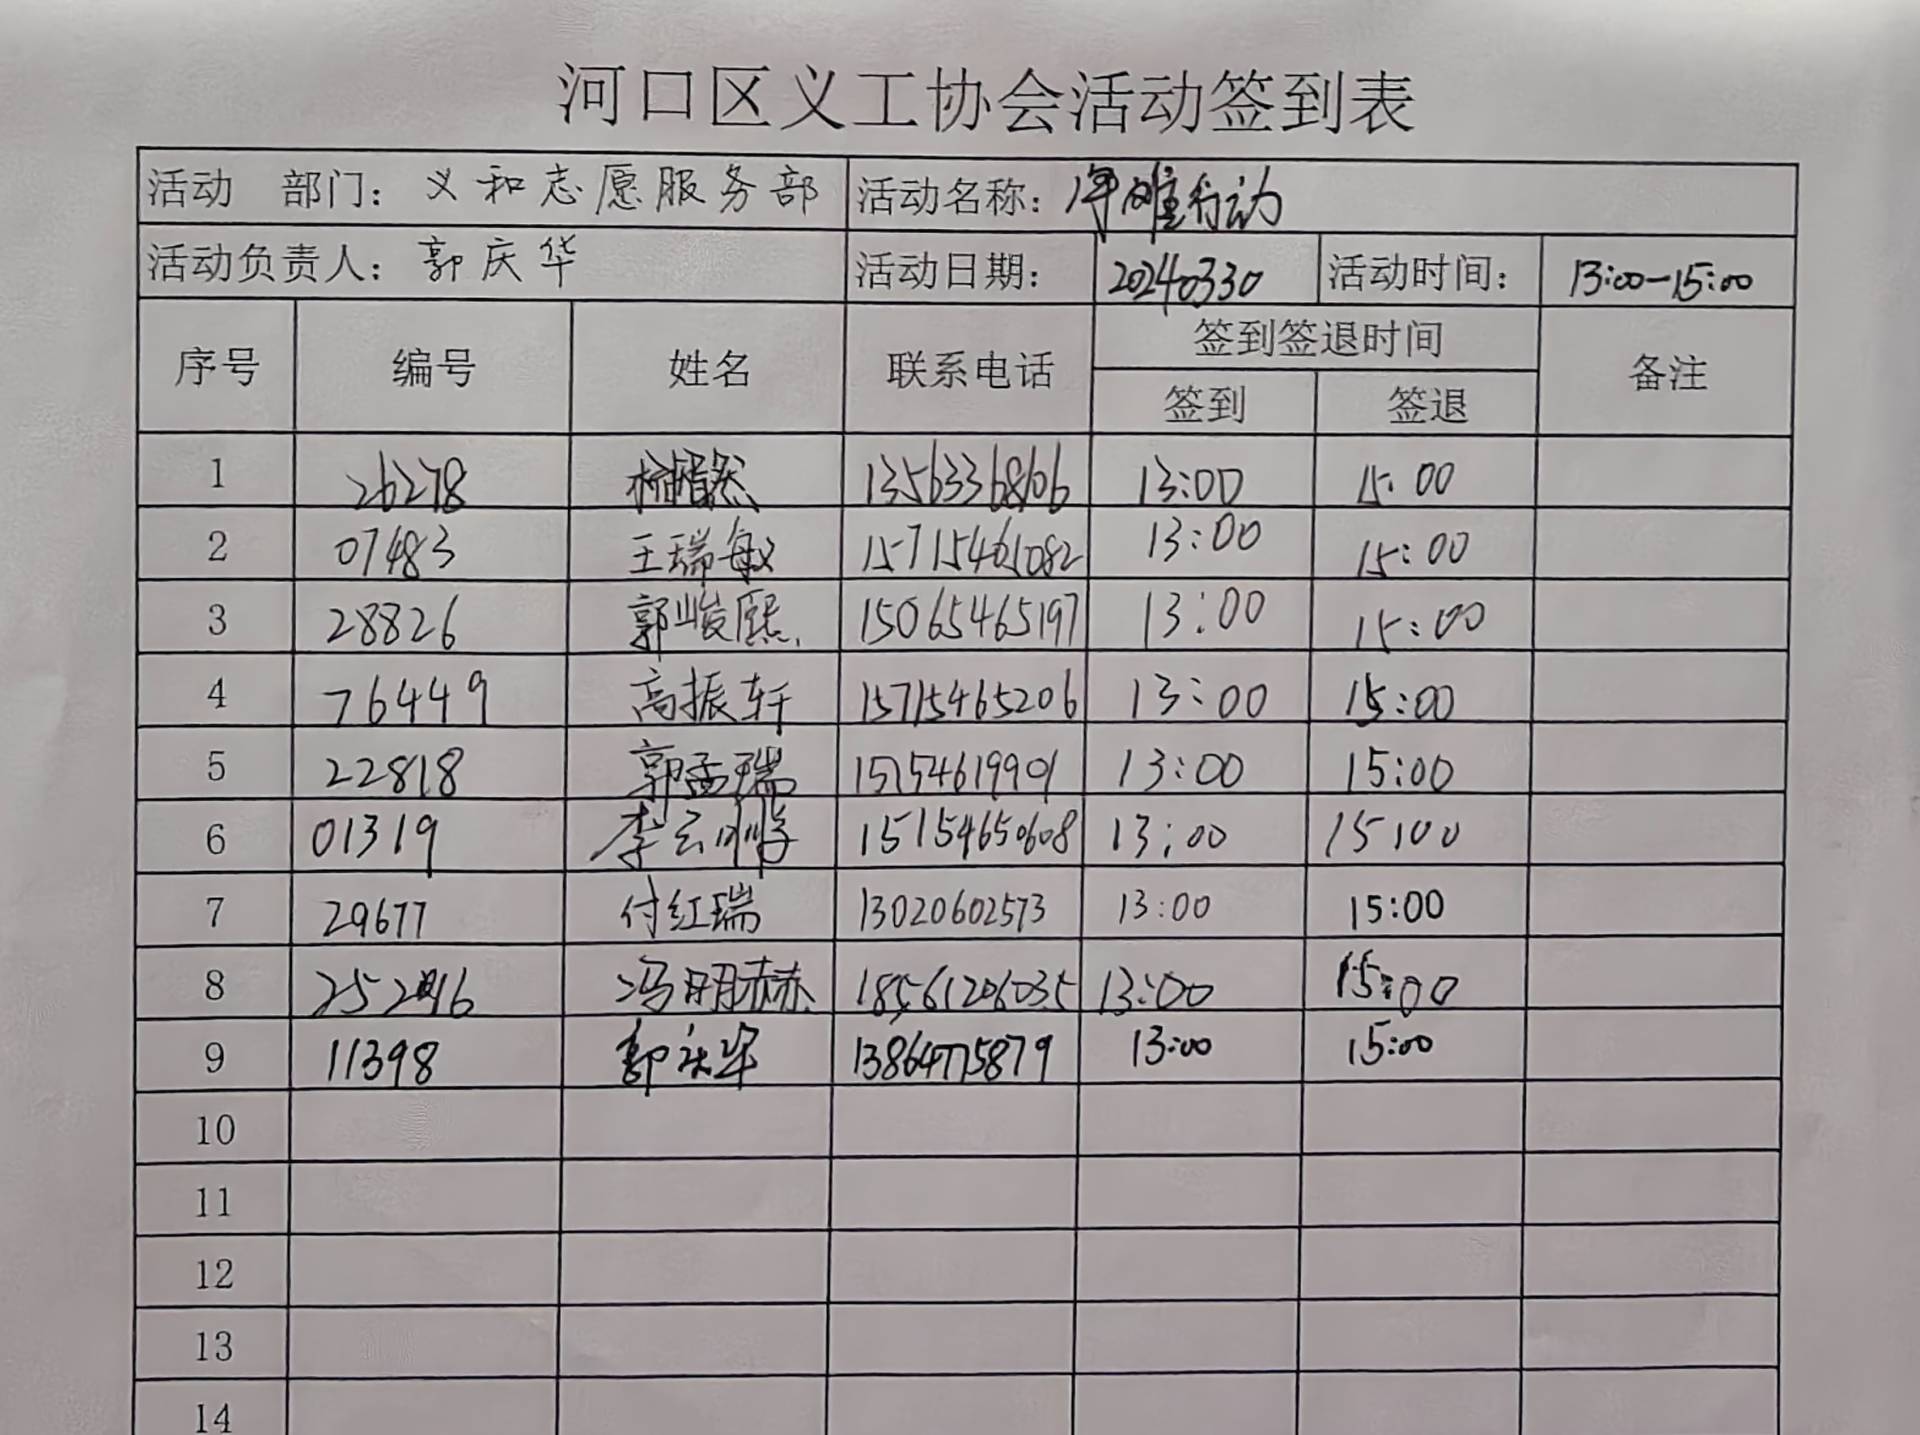 河口区义工协会活动签到表
活动 部门: 义和志愿服务部 活动名称: 行动
活动负责人: 郭庆华 活动日期: 20240330 活动时间: 13:00-15:00
序号 编号 姓名 联系电话 签到签退时间 备注
签到 签退
1 26278 13563368606 13:00 15:00
2 07483 王瑞敏 15715461082 13:00 15:00
3 28826 郭峻熙 15065465197 13:00 15:00
4 76449 高振轩 15715465206 13:00 15:00
5 22818 郭孟瑞 15154619901 13:00 15:00
6 01319 李云 15154650608 13:00 15:00
7 29677 付红瑞 13020602573 13:00 15:00
8 冯明赫 18561206035 13:00 15:00
9 11398 郭庆华 13864775879 13:00 15:00
10
11
12
13
14